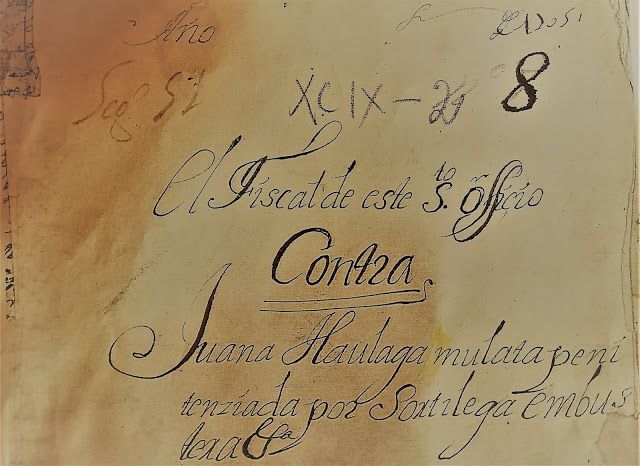 Año
Seg. 51
XCIX - 20 8
El Fiscal de este S.to Officio
Contra
Juana Haulaga mulata peni
tenziada por Sortilega embus
tera &a